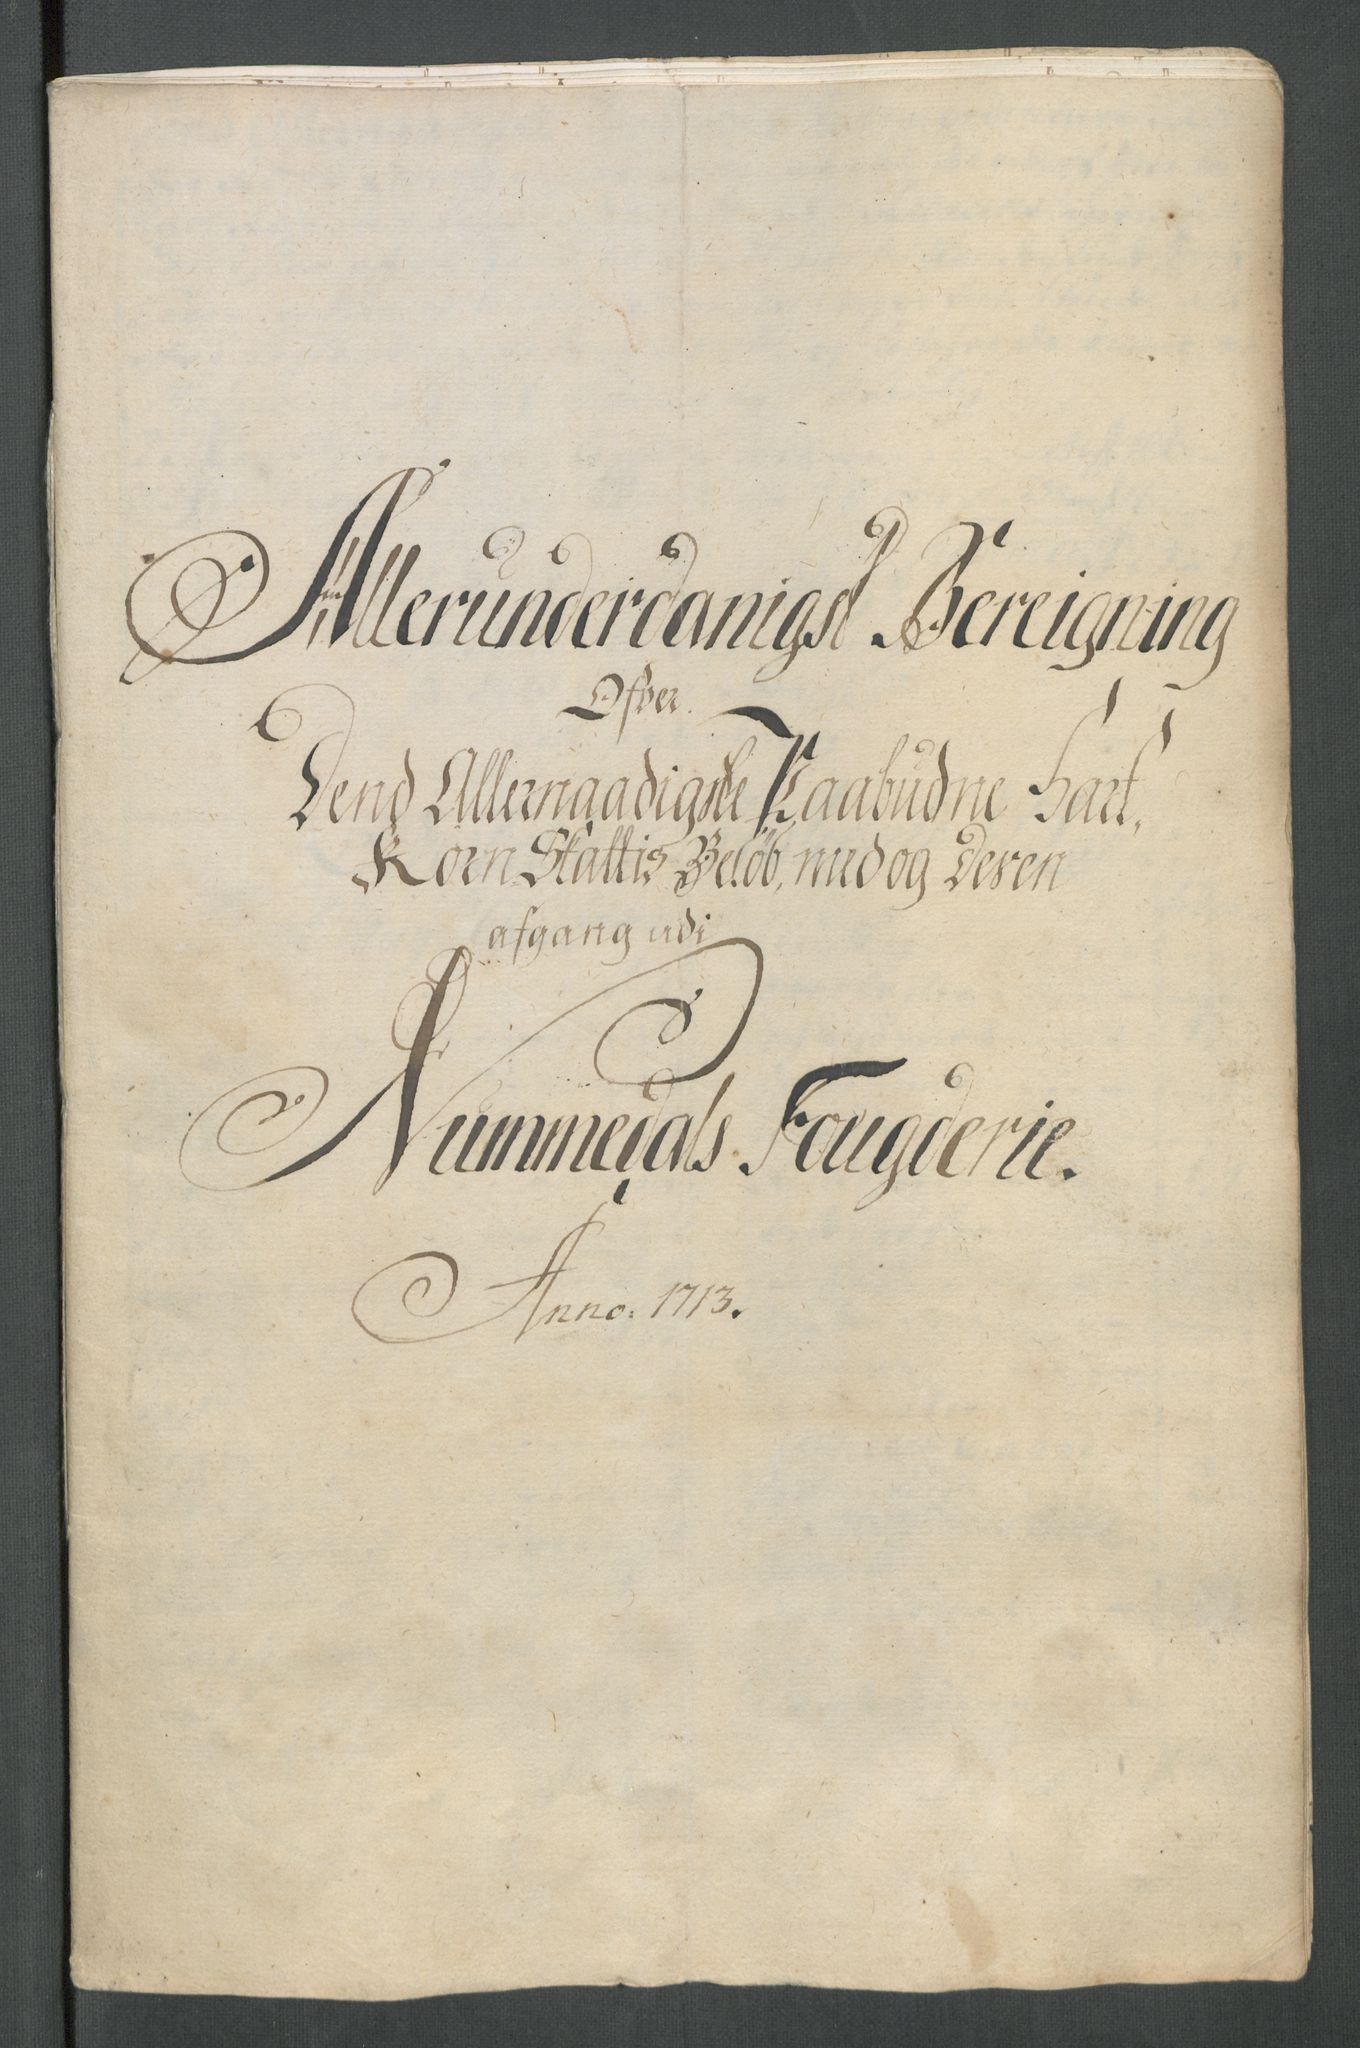 Allerunderdanigst Bereigning
Ofver
Dend Allernaadigste Paabudne Hart,
Korn Skattis Beløb, med og Deren
afgang udi
Nummedals Fougderie.
Anno: 1713.